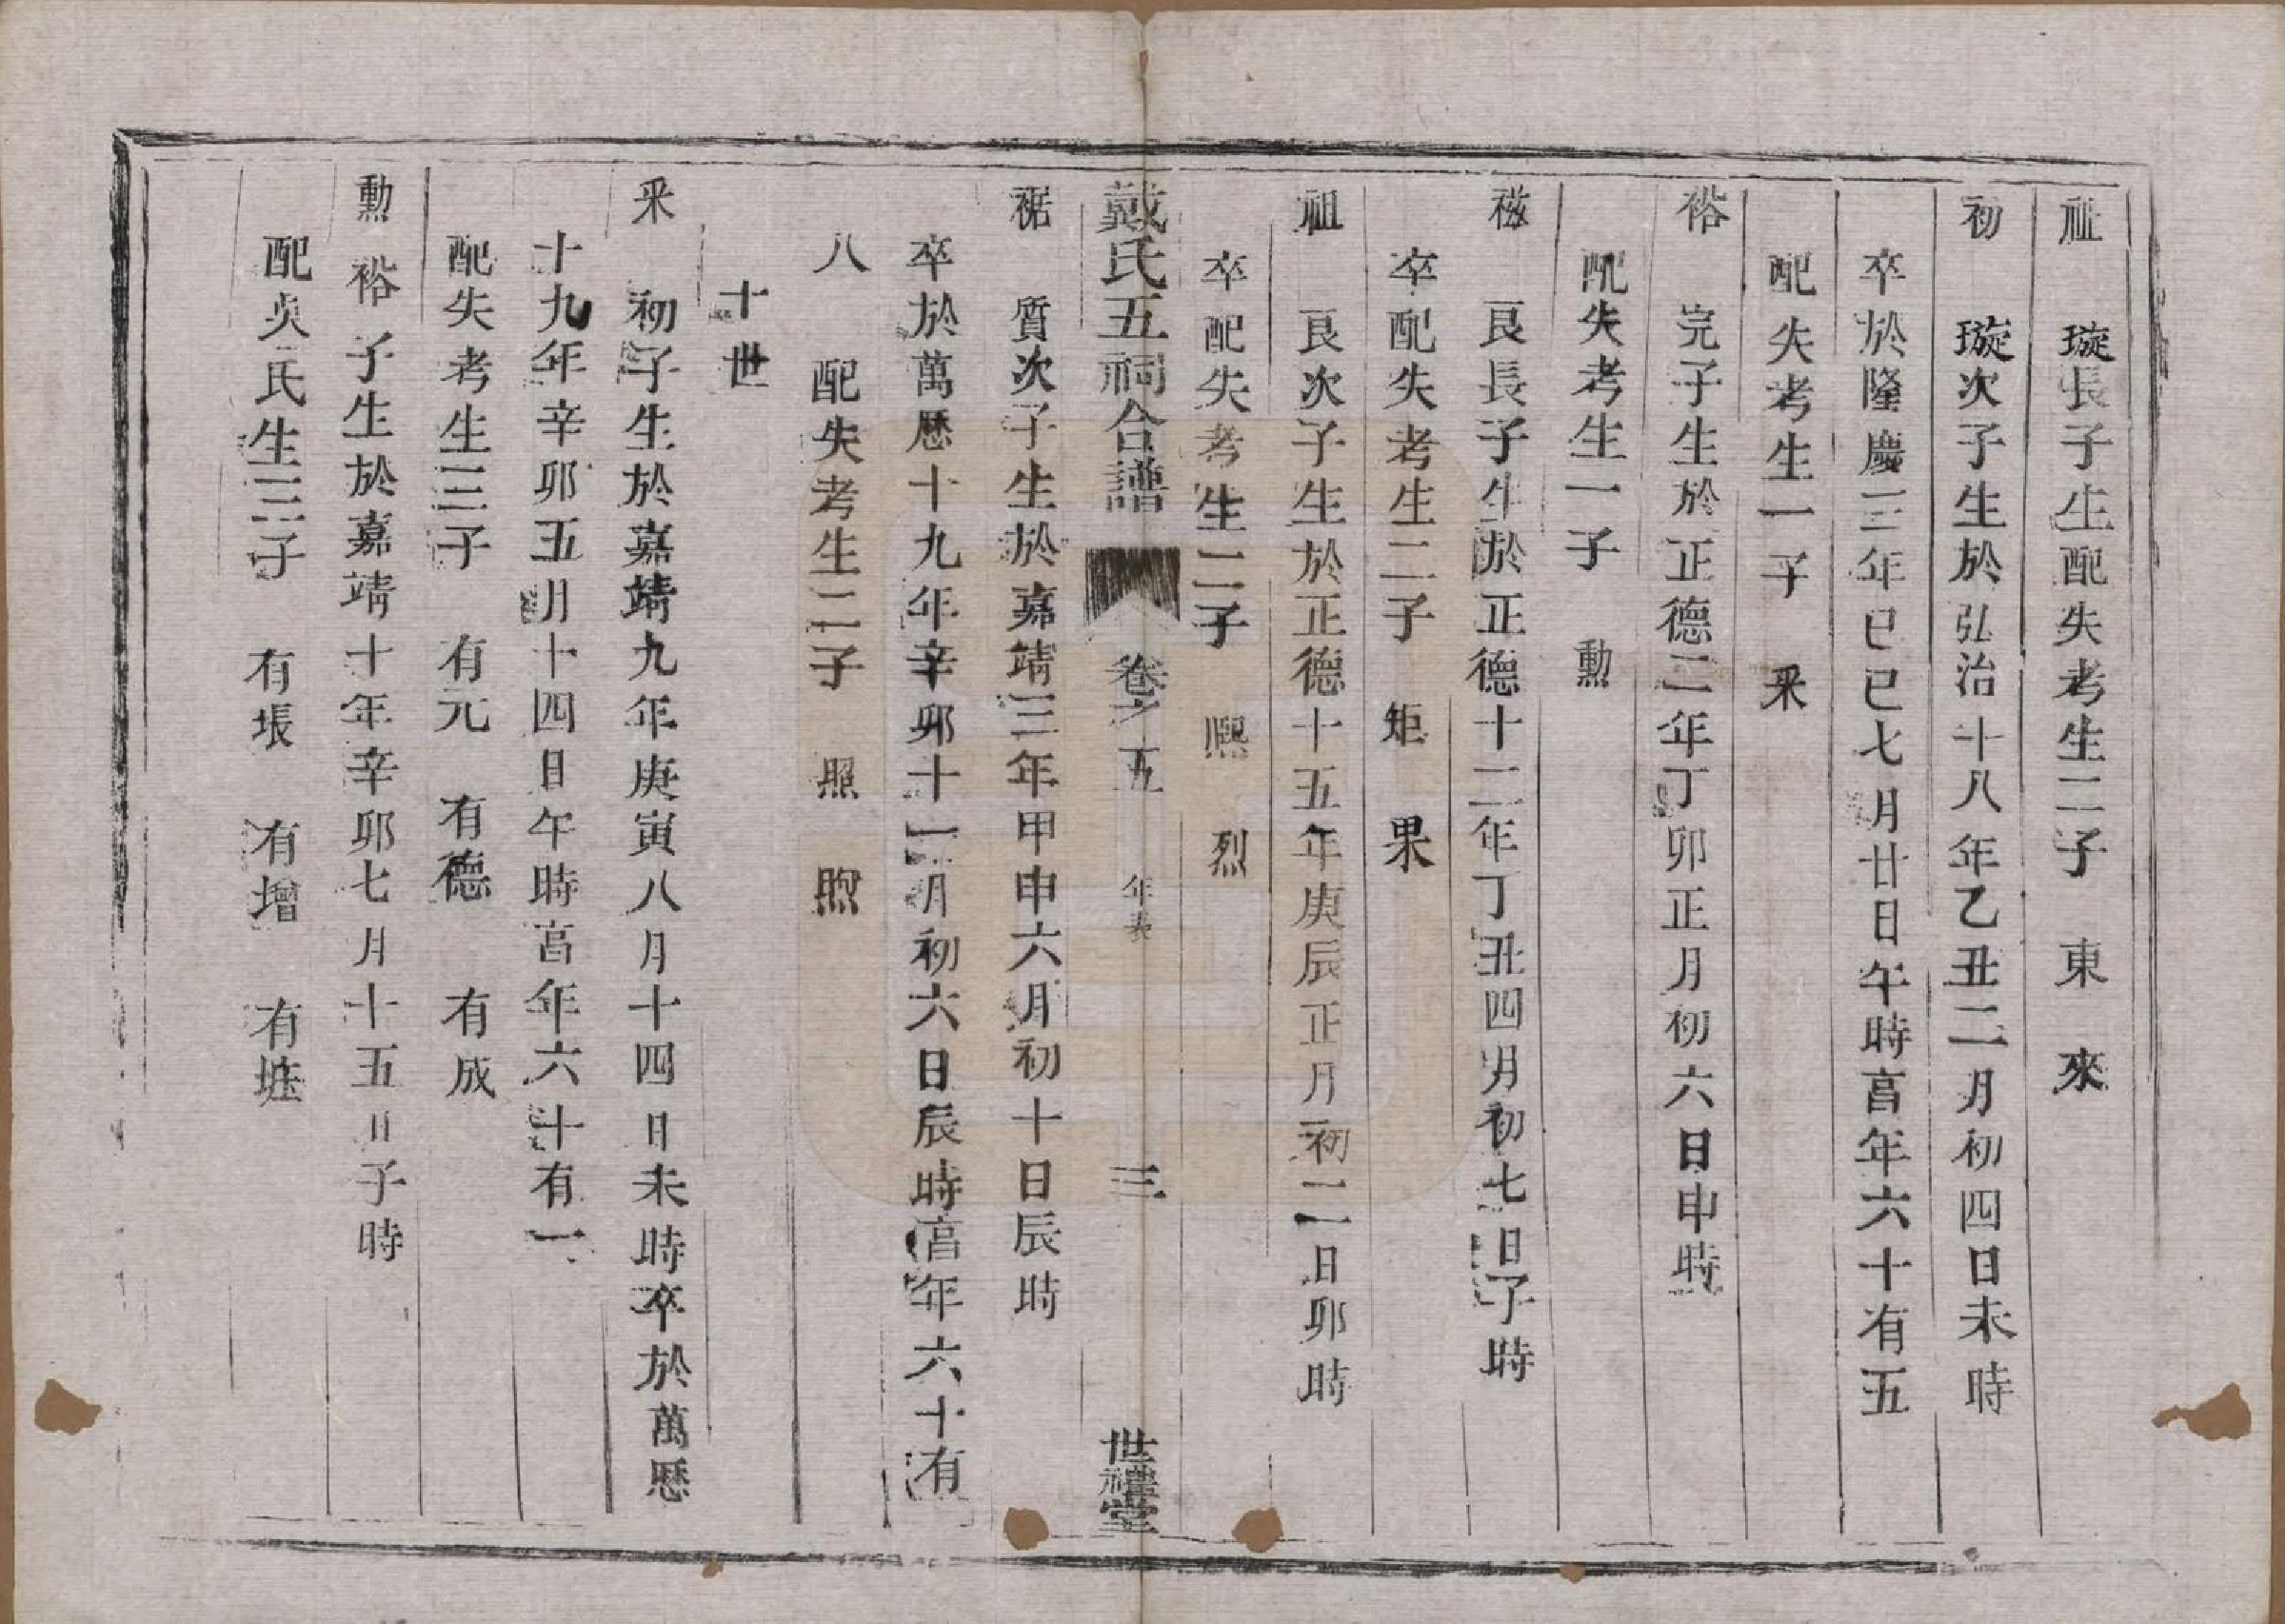 祉 璇長子生配失考生二子 東 來
初 璇次子生於弘治十八年乙丑二月初四日未時
卒於隆慶三年已已七月廿日午時亯年六十有五
配失考生一子 釆
裕 完子生於正德二年丁卯正月初六日申時
配失考生一子 勲
禌 艮長子生於正德十二年丁丑四月初七日子時
卒配失考生二子 矩 果
祖 艮次子生於正德十五年庚辰正月初二日卯時
卒配失考生二子 熙 烈
戴氏五祠合譜 卷之五 年表 三 世禮堂
裾 質次子生於嘉靖三年甲申六月初十日辰時
卒於萬歷十九年辛卯十一月初六日辰時亯年六十有
八 配失考生二子 照 煦
十世
釆 初子生於嘉靖九年庚寅八月十四日未時卒於萬歷
十九年辛卯五月十四日午時亯年六十有一
配失考生三子 有元 有德 有成
勲 裕子生於嘉靖十年辛卯七月十五日子時
配吳氏生三子 有垠 有增 有堆